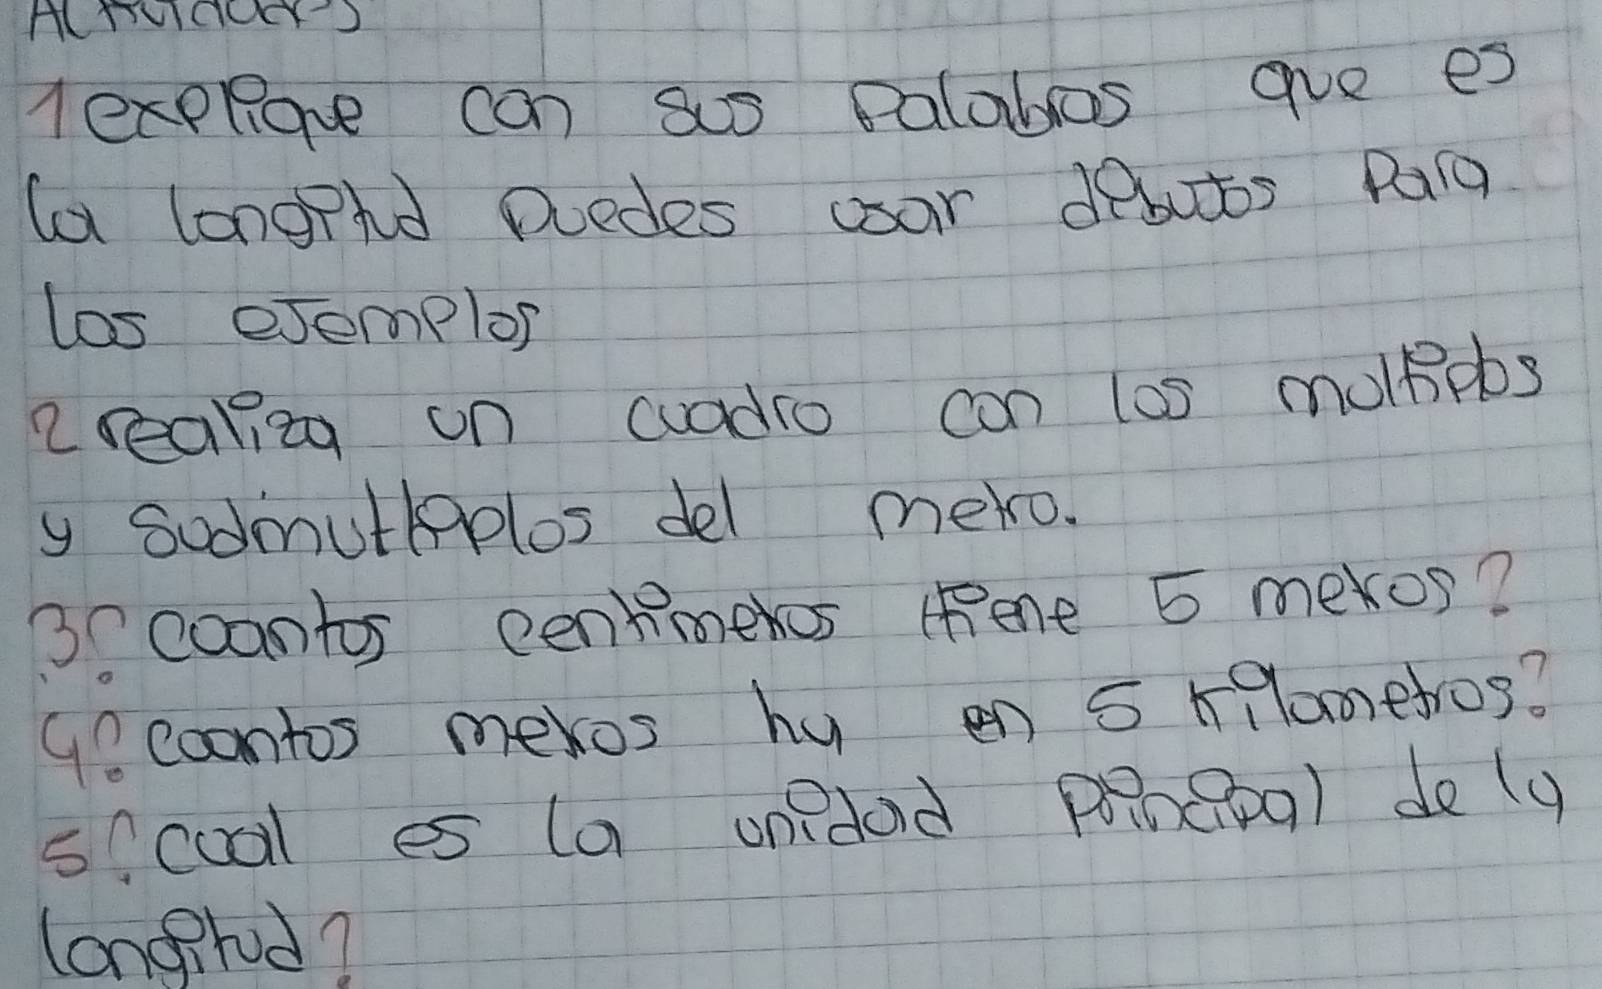 1 explique con sus palabras que es
la longitud puedes usar dibutos para
los ejemplos
2 realiza un cuadro con los multiplos
y sudmutliplos del metro.
3¿ cuantos centimetros tiene 5 metros?
4¿ cuantos metros hy en 5 kilometros?
5¿ cual es la unidad principal de la
longitud?